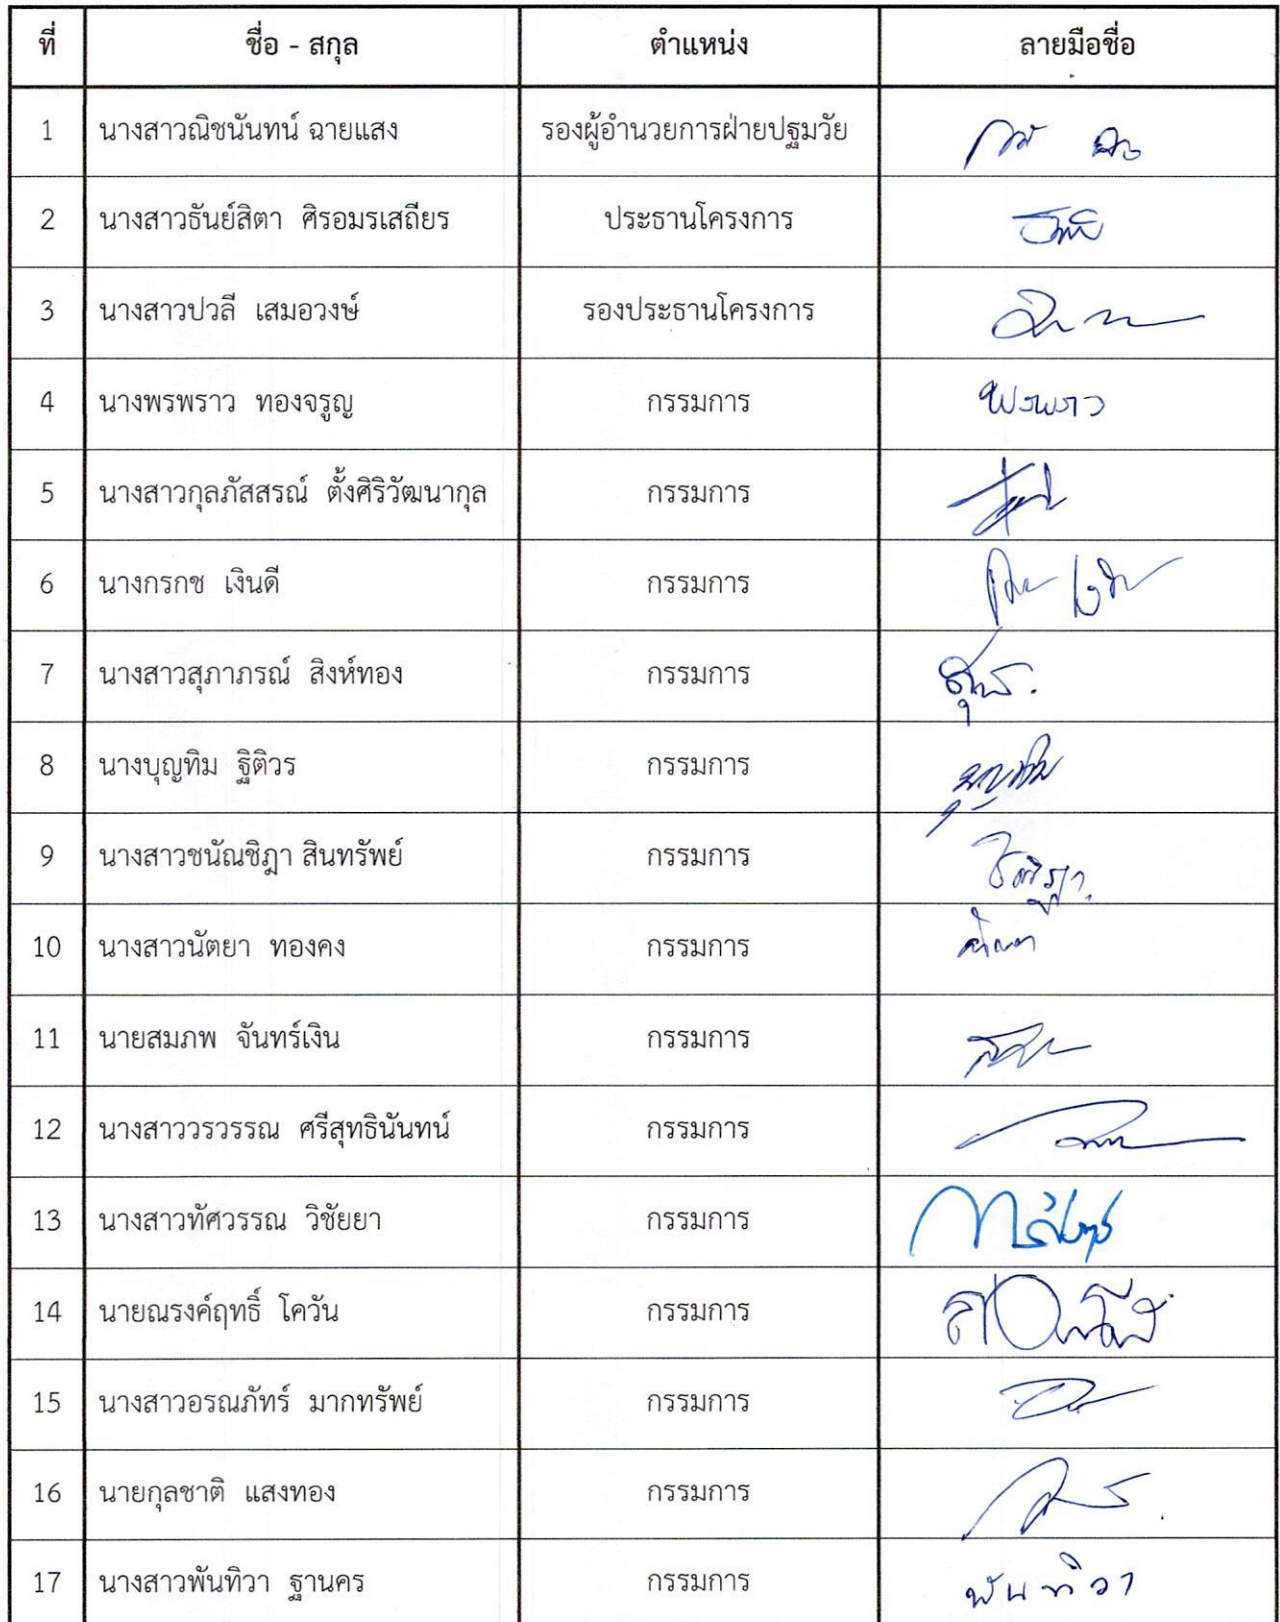 ที่ ชื่อ - สกุล ตำแหน่ง ลายมือชื่อ
1 นางสาวณิชนันทน์ ฉายแสง รองผู้อำนวยการฝ่ายปฐมวัย
2 นางสาวธันย์สิตา ศิรอมรเสถียร ประธานโครงการ
3 นางสาวปวลี เสมอวงษ์ รองประธานโครงการ
4 นางพรพราว ทองจรูญ กรรมการ พรพราว
5 นางสาวกุลภัสสรณ์ ตั้งศิริวัฒนากุล กรรมการ
6 นางกรกช เงินดี กรรมการ
7 นางสาวสุภาภรณ์ สิงห์ทอง กรรมการ
8 นางบุญทิม ฐิติวร กรรมการ บุญทิม
9 นางสาวชนัณชิฎา สินทรัพย์ กรรมการ
10 นางสาวนัตยา ทองคง กรรมการ
11 นายสมภพ จันทร์เงิน กรรมการ
12 นางสาววรวรรณ ศรีสุทธินันทน์ กรรมการ
13 นางสาวทัศวรรณ วิชัยยา กรรมการ
14 นายณรงค์ฤทธิ์ โควัน กรรมการ
15 นางสาวอรณภัทร์ มากทรัพย์ กรรมการ
16 นายกุลชาติ แสงทอง กรรมการ
17 นางสาวพันทิวา ฐานคร กรรมการ พันทิวา